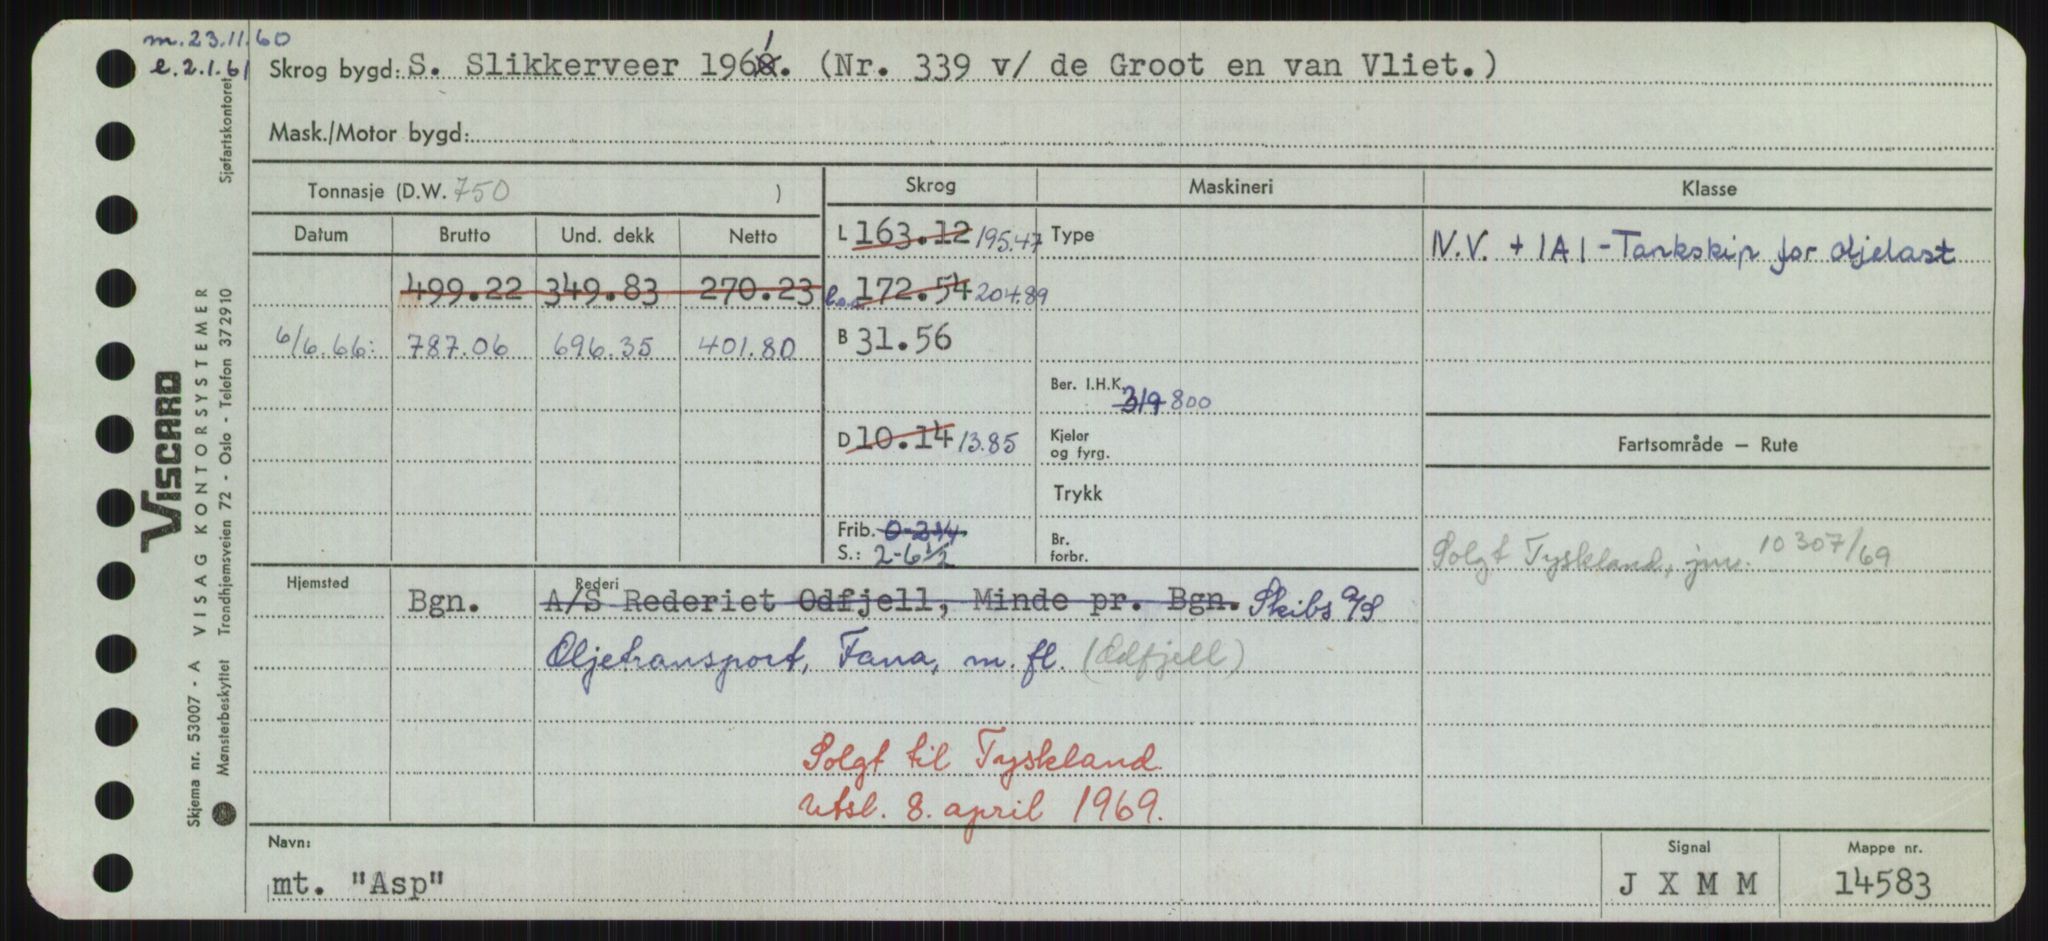 m. 23.11.60
e. 2.1.61
Skrog bygd: S. Slikkerveer 1960. 1 (Nr. 339 v/ de Groot en van Vliet.)
Mask./Motor bygd:
Tonnasje (D.W. 750 )
Skrog
Maskineri
Klasse
Datum Brutto Und. dekk Netto
L 163.12 195.47
Type
N.V. + 1A1 - Tankskip for oljelast
499.22 349.83 270.23
l.o.a 172.54 204.89
6/6.66: 787.06 696.35 401.80
B 31.56
Ber. I.H.K. 319 800
D 10.14 13.85
Kjeler
og fyrg.
Fartsområde — Rute
Trykk
Frib. 0-2¼
S.: 2-6½
Br.
forbr.
Solgt Tyskland, jnr. 10307/69
Hjemsted
Rederi
Bgn. A/S Rederiet Odfjell, Minde pr. Bgn. Skibs A/S
Oljetransport, Fana, m. fl. (Odfjell)
Solgt til Tyskland
Utsl. 8. april 1969.
Navn:
mt. "Asp"
Signal
J X M M
Mappe nr.
14583
VISCARD
Skjema nr. 53007 - A VISAG KONTORSYSTEMER
Mønsterbeskyttet Trondhjemsveien 72 - Oslo - Telefon 372910 Sjøfartskontoret